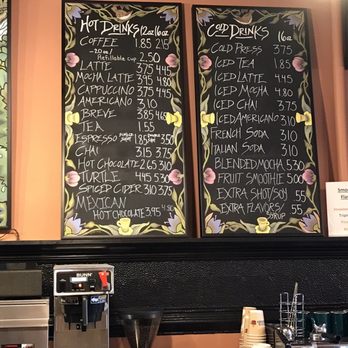 HOT DRINKS 12oz 16oz
COFFEE 1.85 2.15
20oz/
Refillable cup 2.50
LATTE 3.75 4.45
MOCHA LATTE 3.95 4.80
CAPPUCCINO 3.75 4.45
AMERICANO 3.10
BREVE 3.85 4.65
TEA 1.55
ESPRESSO 1.85 3.50
CHAI 3.15 3.75
HOT CHOCOLATE 2.65 3.10
TURTLE 4.45 5.30
SPICED CIDER 3.10 3.75
MEXICAN
HOT CHOCOLATE 3.95 4.80
COLD DRINKS
16oz
ICED PRESS 3.75
ICED TEA 1.85
ICED LATTE 4.45
ICED MOCHA 4.80
ICED CHAI 3.75
ICED AMERICANO 3.10
FRENCH SODA 3.10
ITALIAN SODA 3.10
BLENDED MOCHA 5.30
FRUIT SMOOTHIE 5.00
EXTRA SHOT/SOY .55
EXTRA FLAVORS/ .55
SYRUP
BUNN